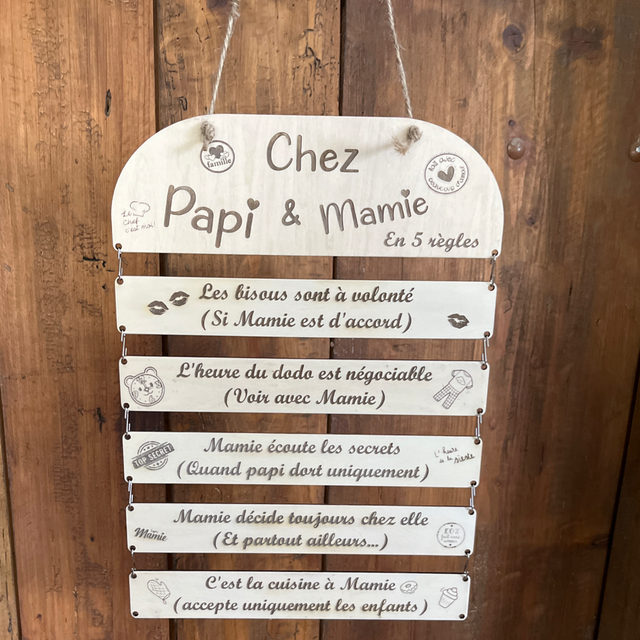 Chez
famille
fait avec
beaucoup d'amour
Le
chef
c'est moi
Papi & Mamie
En 5 règles
Les bisous sont à volonté
(Si Mamie est d'accord)
L'heure du dodo est négociable
(Voir avec Mamie)
TOP SECRET
Mamie écoute les secrets
(Quand papi dort uniquement)
L'heure
de la sieste
Mamie décide toujours chez elle
(Et partout ailleurs...)
Mamie
C'est la cuisine à Mamie
(accepte uniquement les enfants)